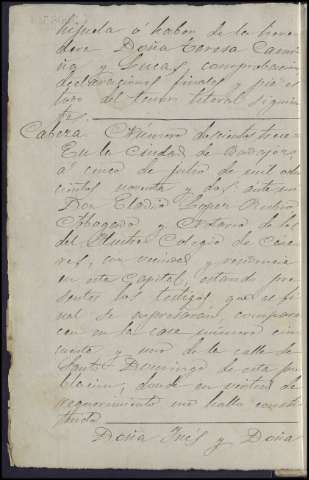 hijuela ó haber de la here-
dera Doña Teresa
y Lucas, comprobación,
declaraciones finales y pié es
del tenor literal siguien-
tes.
Cabeza. Número doscientos trece=
En la Ciudad de Badajoz,
á cinco de Julio de mil ocho
cientos noventa y dos: ante mi
Don Eladio Lopez Rubio
Abogado y Notario de los
del Ilustre Colegio de Cáce-
res, con vecindad y residencia
en esta Capital, estando pre-
sentes los testigos, que al fi-
nal se espresarán, compare
cen en la casa número cin-
cuenta y uno de la calle de
Santo Domingo de esta po-
blacion, donde en virtud de
requerimiento me hallo consti-
tuido
Doña Inés y Doña